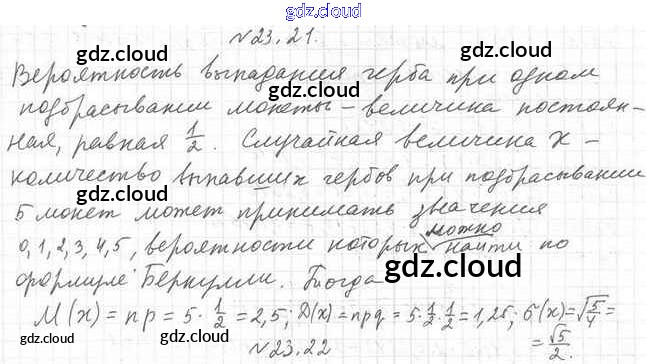 gdz.cloud
№23.21.
gdz.cloud gdz.cloud
Вероятность выпадания герба при одном
подбрасывании монеты – величина постоян-
gdz.cloud gdz.cloud
ная, равная 1/2. Случайная величина X –
количество выпавших гербов при подбрасывании
gdz.cloud gdz.cloud
5 монет может принимать значения
можно
0, 1, 2, 3, 4, 5, вероятности которых найти по
gdz.cloud
формуле Беркулли. Тогда
gdz.cloud
M(x) = np = 5 · 1/2 = 2,5; D(x) = npq = 5·1/2·1/2 = 1,25; σ(x) = √5/4 =
= √5/2.
№23.22
gdz.cloud gdz.cloud